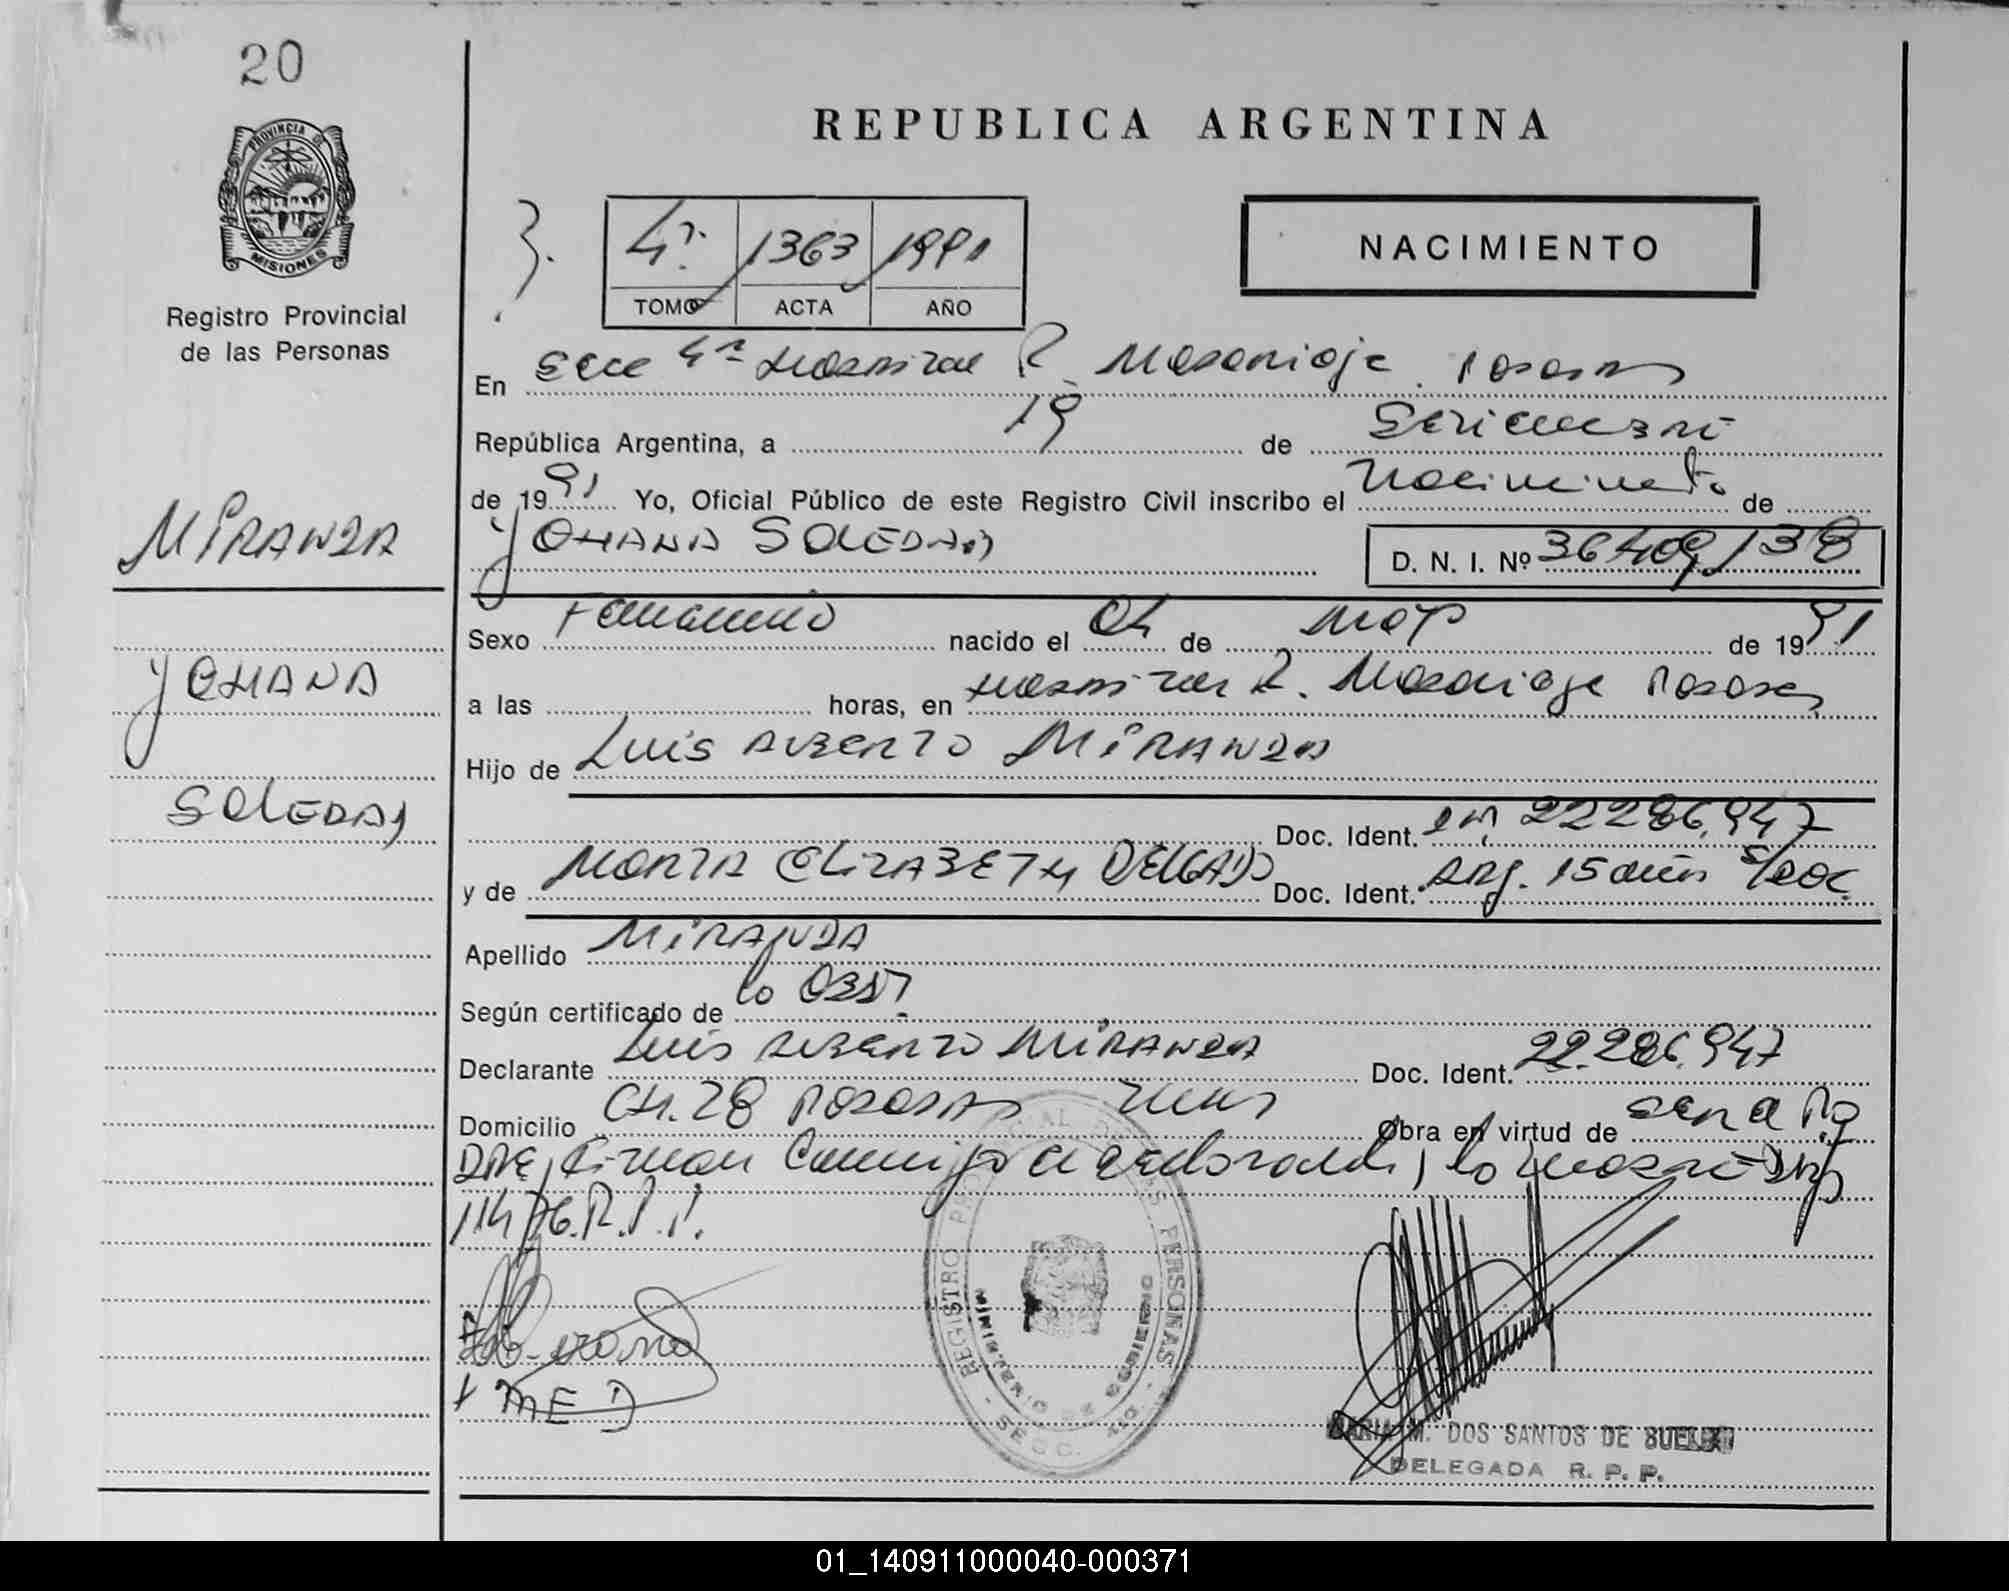 20
REPUBLICA ARGENTINA
PROVINCIA DE
MISIONES
Registro Provincial
de las Personas
4ª 1363 1991
TOMO ACTA AÑO
NACIMIENTO
En Secc 4ª Hospital R. Madariaga Posadas
República Argentina, a 19 de Setiembre
de 1991 Yo, Oficial Público de este Registro Civil inscribo el Nacimiento de
YOHANA SOLEDAD
D. N. I. Nº 36409138
MIRANDA
YOHANA
SOLEDAD
Sexo Femenino nacido el 04 de de 1991
a las horas, en Hospital R. Madariaga Posadas
Hijo de Luis ALBERTO MIRANDA
Doc. Ident. 22286.947
y de MARTA ELIZABETH DELGADO Doc. Ident. Arg. 15 años s/doc
Apellido MIRANDA
Según certificado de lo Obst.
Declarante Luis ALBERTO MIRANDA Doc. Ident. 22.286.947
Domicilio CH. 28 POSADAS Obra en virtud de ser el Pa
DRE, Firman Conmigo el declarante, la madre
114/76.R.P.P.
REGISTRO PROVINCIAL DE LAS PERSONAS
SECC.
MED
MARIA M. DOS SANTOS DE
DELEGADA R. P. P.
01_140911000040-000371